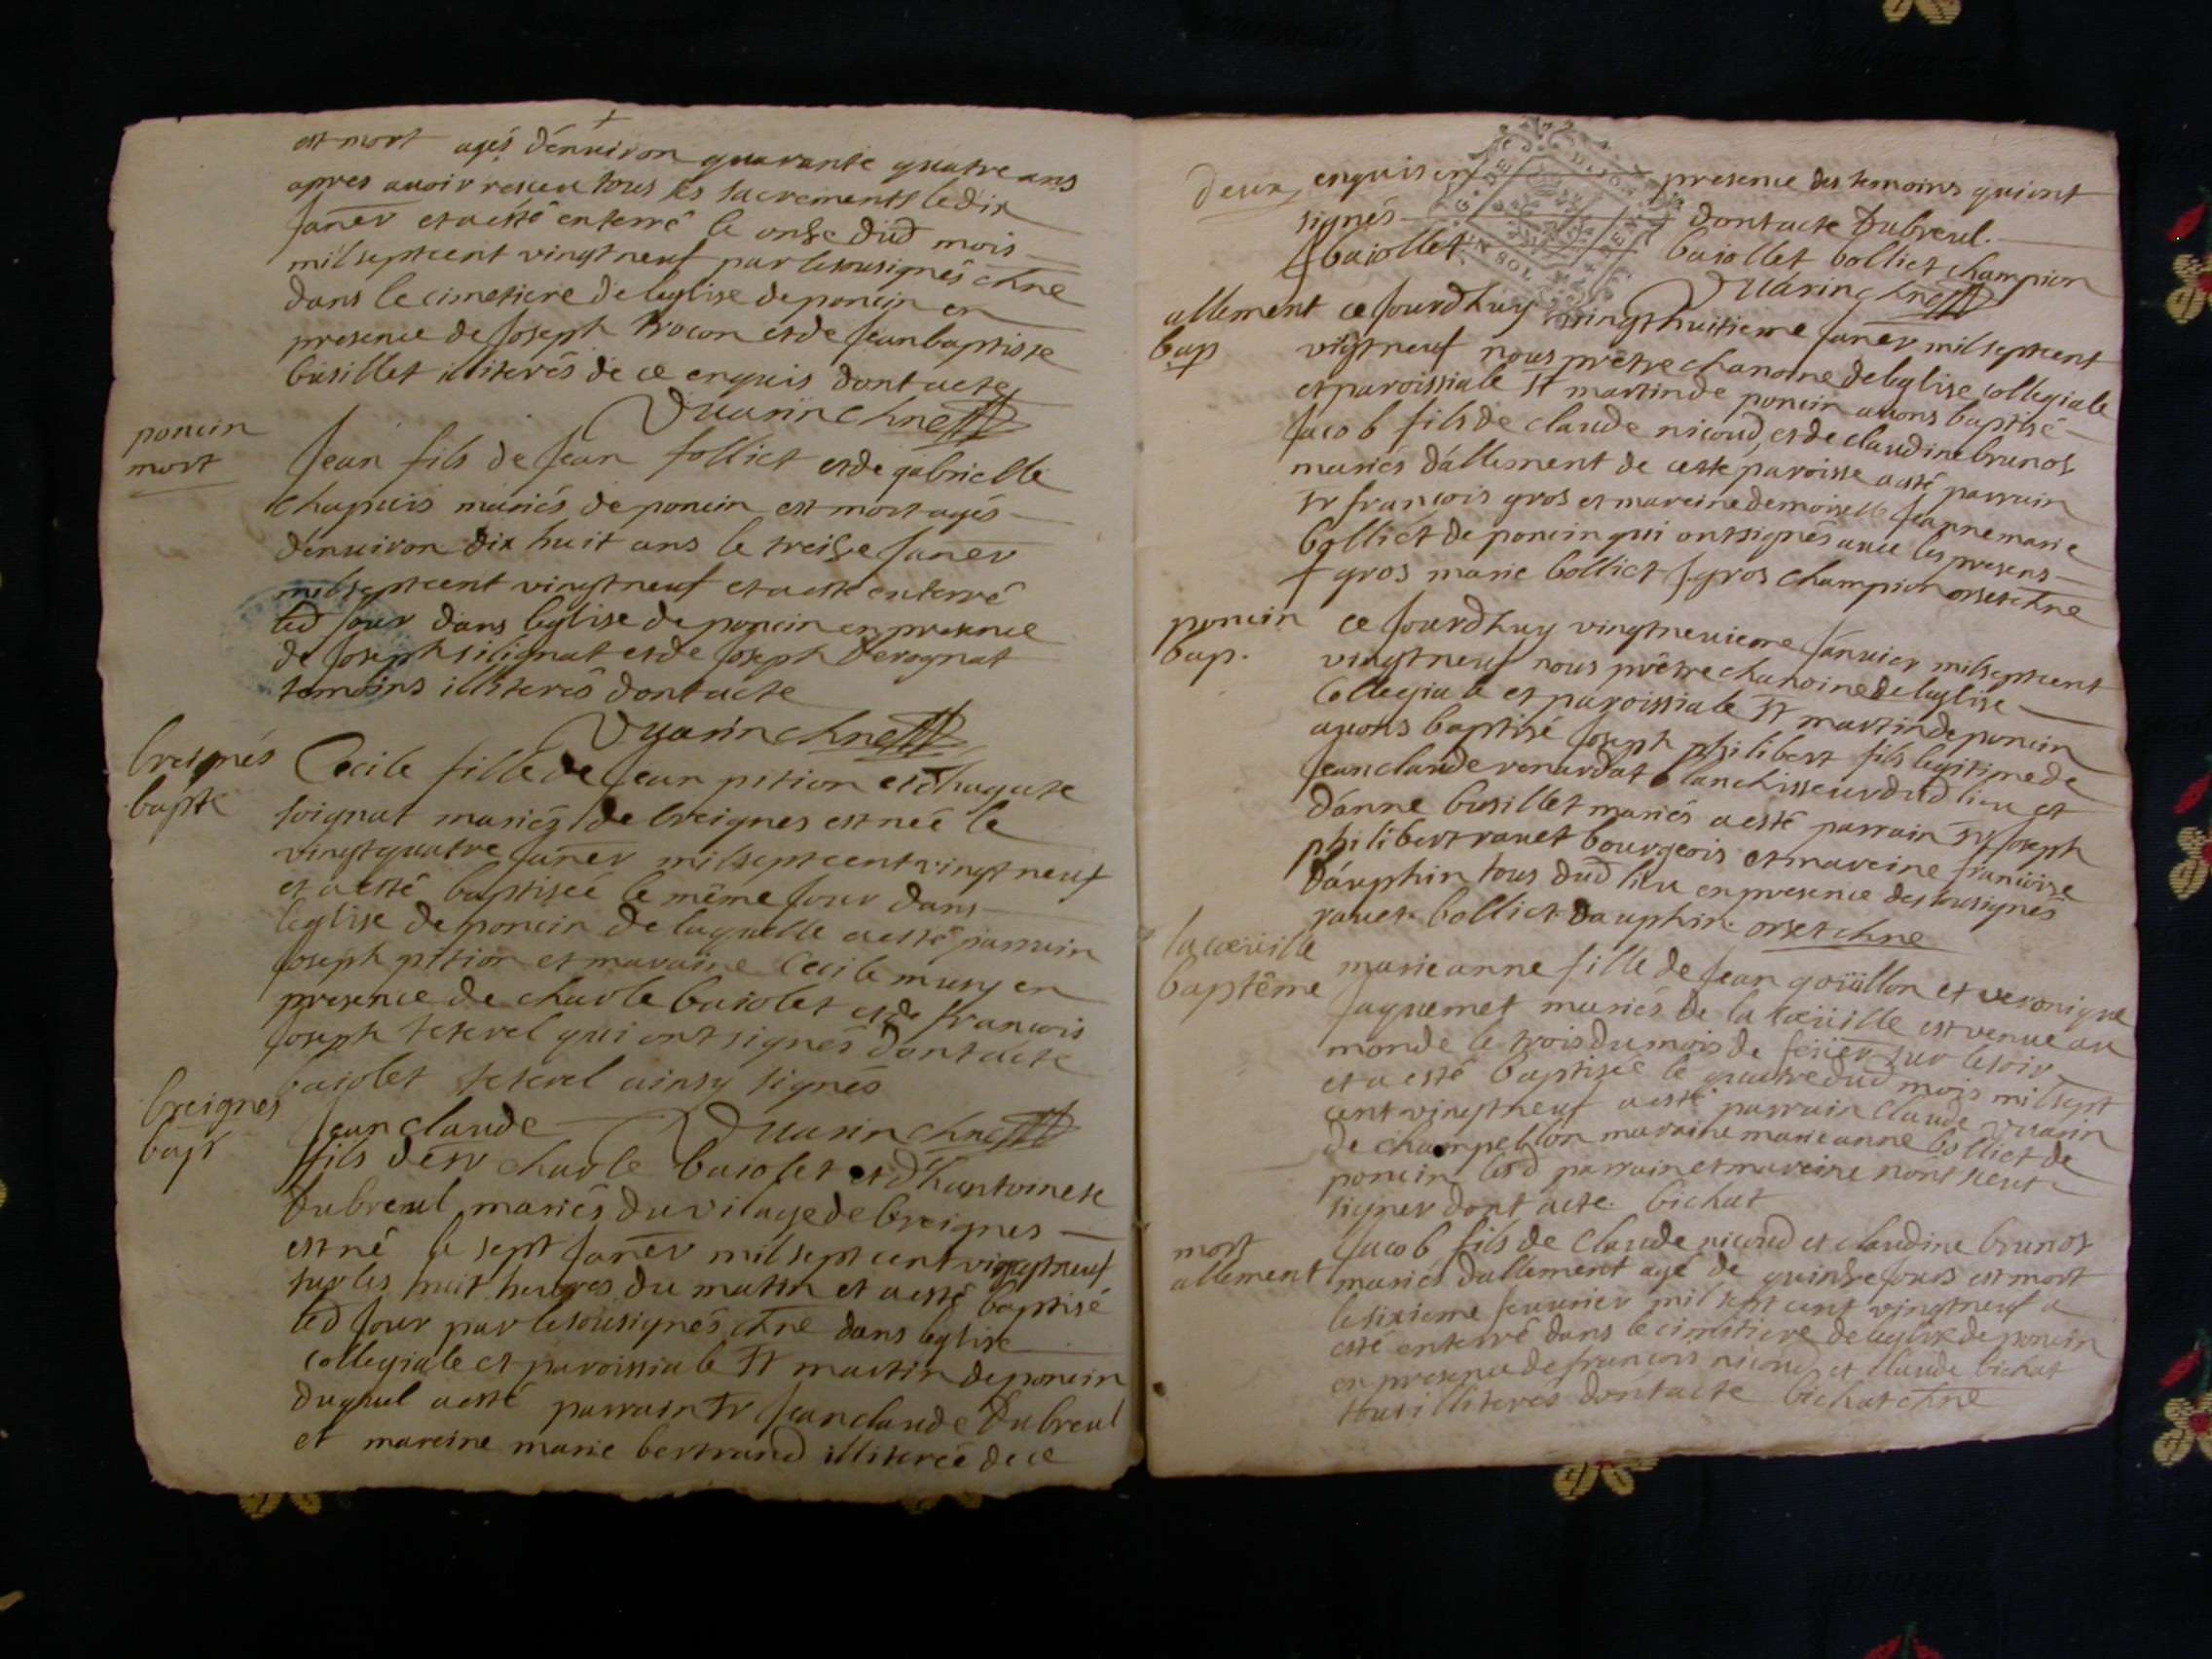 est mort agés dénuiron quarante quatre ans
apres auoir reseu tous les sacrements le dix
Janer et a esté enterré le onse dud mois
mil sept cent vingt neuf par le sousignés chne
dans le cimetiere de leglise de poncin en
presence de Joseph trocon et de Jean baptiste
busillet illiterés de ce enquis dont acte
Vuarin chne
poncin
mort
Jean fils de Jean folliet et de gabrielle
Chapuis mariés de poncin est mort agés
dénuiron dix huit ans le treise Janer
mil sept cent vingt neuf et a esté enterré
led Jour dans leglise de poncin en presence
de Joseph silignat et de Joseph derognat
temoins illiterés dont acte
Vuarin chne
breignés
bapte
Cecile fille de Jean pition et dhagate
soignat mariés de breignes est née le
vingt quatre Janer mil sept cent vingt neuf
et a esté baptisée le même Jour dans
leglise de poncin de laquelle a esté parrain
Joseph pition et maraine Cecile musy en
presence de charle baiolet et de francois
Joseph teterel qui ont signés dont acte
baiolet teterel ainsy signés
Vuarin chne
breignes
bapt
Jean claude
fils de sr charle baiolet et dhantoinete
Dubreul mariés du vilage de breignes
est né le sept Janer mil sept cent vingt neuf
sur les huit heures du matin et a esté baptisé
led Jour par le sousignés chne dans leglise
collegiale et paroissiale st martin de poncin
duquel a esté parrain sr Jean claude Dubreul
et mareine marie bertrand illiterée de ce
deux
enquis en presence des temoins qui ont
signés dont acte Dubreul.
baiollet baiollet bolliet champion
Vuarin chne
allement
bap
ce Jourdhuy vingt huitieme Janer mil sept cent
vigt neuf nous prêtre chanoine de leglise collegiale
et paroissiale st martin de poncin auons baptisé
Jacob fils de claude nicoud, et de claudine brunot
mariés dállement de cette paroisse a esté parrain
sr françois gros et mareine demoiselle Jeanne marie
bolliet de poncin qui ont signés auec les presens
gros marie bolliet J. gros champion orset chne
poncin
bap.
ce Jourdhuy vingt neuieme Januier mil sept cent
vingt neuf nous prêtre chanoine de leglise
Collegiale et paroissiale st martin de poncin
auons baptisé Joseph philibert fils legitime de
Jean claude renardat blanchisseur dud lieu et
dánne busillet mariés a esté parrain sr Joseph
philibert rauet bourgeois et mareine françoise
dáuphin tous dud lieu en presence des sousignés
rauet. bolliet. dauphin. orset chne
la cœüille
baptême
marie anne fille de Jean goüillon et veronique
Jaquemet mariés de la cœüille est venue au
monde le trois du mois de feüer sur le soir
et a esté baptisée le quatre dud mois mil sept
cent vingt neuf a esté parrain claude vuarin
de champeillon maraine marie anne bolliet de
poncin lesd parrain et mareine nónt sceut
signer dont acte. bichat
mort
allement
Jacob fils de Claude nicoud et claudine brunot
mariés dallement agé de quinse Jours est mort
le sixieme feuurier mil sept cent vingt neuf a
esté enterré dans le cimitiere de leglise de poncin
en presence de françois nicoud et claude bichat
tous illiteres dont acte bichat chne